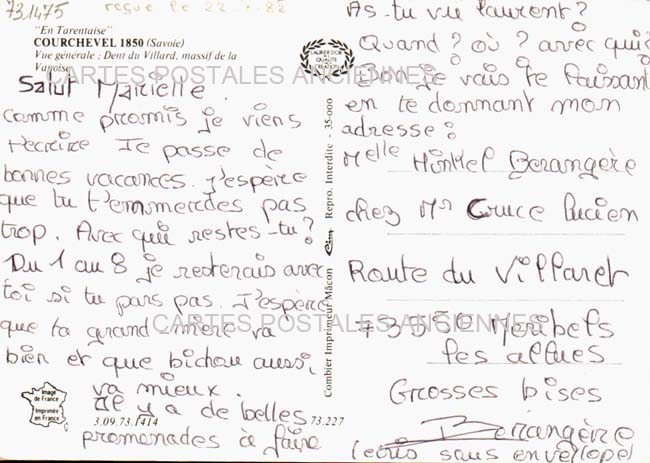 731475
reçue le 22-7-82
"En Tarentaise"
COURCHEVEL 1850 (Savoie)
Vue générale ; Dent du Villard, massif de la
Vanoise.
CARTES POSTALES ANCIENNES
Salut Marielle.
comme promis je viens
t'ecrire Je passe de
bonnes vacances. J'espère
que tu t'emmerdes pas
trop. Avec qui restes-tu?
Du 1 au 8 je resterais avec
toi si tu pars pas. J'espère
que ta grand mère va
bien et que bichou aussi,
va mieux.
Il y a de belles
promenades à faire
Image
de France
Imprimée
en France
3.09.73.1414
73.227
Combier Imprimeur Mâcon
Cim
Repro. Interdite - 35-000
LAURIER D'OR
DE LA
QUALITE
CREATION
As-tu vu laurent?
Quand? où? avec qui?
Bon je vais te laissant
en te donnant mon
adresse:
Melle Hinkel Berangère
chez Mr Cruce Lucien
Route du Villaret
73550 Meribels
les allues
CARTES POSTALES ANCIENNES
Grosses bises
Berangère
(ecris sans enveloppe)